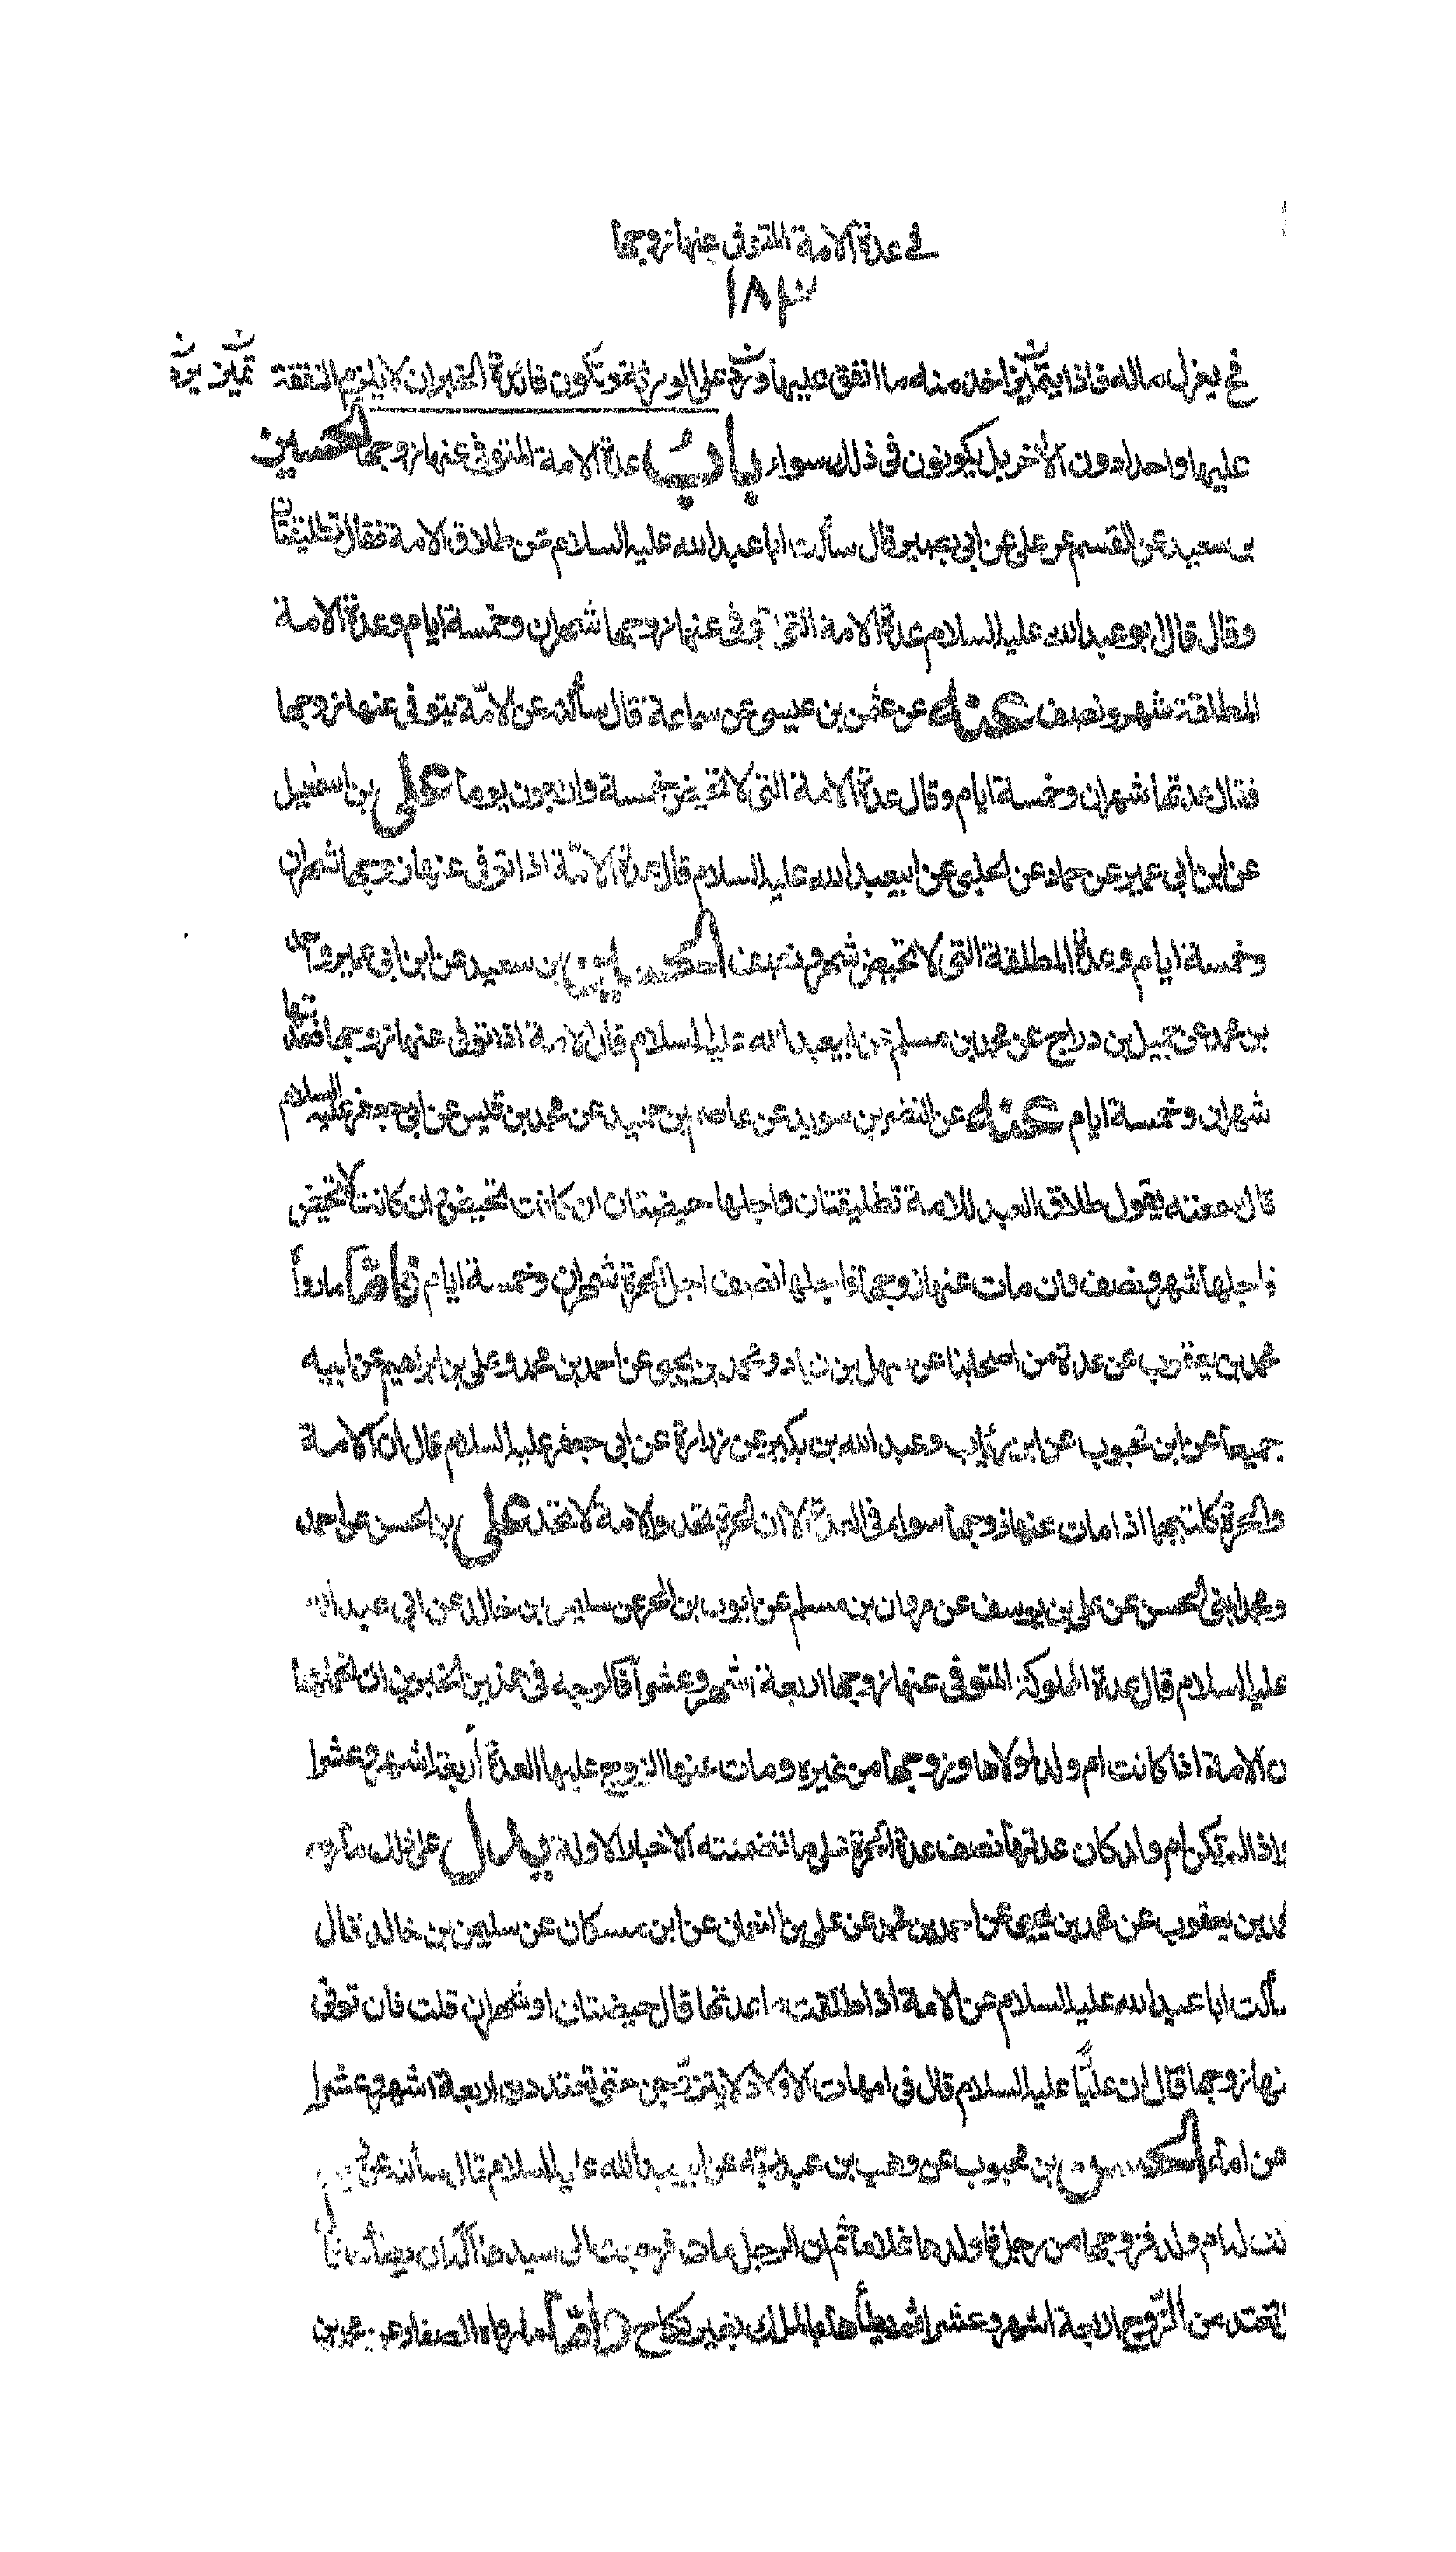 في عدة الامة المتوفى عنها زوجها
١٨٣
في يعزل ماله فاذا يتميز اخذ منه ما انفق عليها وردّ على الورثة وتكون فائدة الخبر ان لا يلزم النفقة
عليها واحدا دون الآخر بل يكونون في ذلك سواء باب عدة الامة المتوفى عنها زوجها الحسين
بن سعيد عن القسم عن علي عن ابي بصير قال سألت ابا عبد الله عليه السلام عن طلاق الامة فقال تطليقتان
وقال قال ابو عبد الله عليه السلام عدة الامة التي توفى عنها زوجها شهران وخمسة ايام وعدة الامة
المطلقة شهر ونصف عنه عن عثمن بن عيسى عن سماعة قال سألته عن الامة يتوفى عنها زوجها
فقال عدتها شهران وخمسة ايام وقال عدة الامة التي لا تحيض خمسة واربعون يوما علي بن اسمعيل
عن ابن ابي عمير عن حماد عن الحلبي عن ابيعبد الله عليه السلام قال عدة الامة اذا توفى عنها زوجها شهران
وخمسة ايام وعدة المطلقة التي لا تحيض شهر ونصف الحسين بن سعيد عن ابن ابي عمير واحمد
بن محمد عن جميل بن دراج عن محمد بن مسلم عن ابيعبد الله عليه السلام قال الامة اذا توفى عنها زوجها فعدتها
شهران وخمسة ايام عنه عن النضر بن سويد عن عاصم بن حميد عن محمد بن قيس عن ابي جعفر عليه السلام
قال سمعته يقول طلاق العبد للامة تطليقتان واجلها حيضتان ان كانت تحيض وان كانت لا تحيض
فاجلها شهر ونصف وان مات عنها زوجها فاجلها نصف اجل الحرة شهران وخمسة ايام فامّا ما رواه
محمد بن يعقوب عن عدة من اصحابنا عن سهل بن زياد ومحمد بن يحيى عن احمد بن محمد وعلي بن ابراهيم عن ابيه
جميعا عن ابن محبوب عن ابن رئاب وعبد الله بن بكير عن زرارة عن ابي جعفر عليه السلام قال ان الامة
والحرة كلتيهما اذا مات عنها زوجها سواء في العدة الا ان الحرة تحد والامة لا تحد علي بن الحسن عن احمد
ومحمد ابني الحسن عن علي بن يوسف عن مروان بن مسلم عن ايوب بن الحر عن سليمن بن خالد عن ابي عبد الله
عليه السلام قال عدة المملوكة المتوفى عنها زوجها اربعة اشهر وعشرا فالوجه في هذين الخبرين ان نحملهما
ن الامة اذا كانت ام ولد لمولاها وزوجها من غيره ومات عنها الزوج عليها العدة اربعة اشهر وعشرا
واذا لم تكن ام ولد كان عدتها نصف عدة الحرة على ما تضمنته الاخبار الاولة يدل على ذلك ما رواه
محمد بن يعقوب عن محمد بن يحيى عن احمد بن محمد عن علي بن النعمان عن ابن مسكان عن سليمن بن خالد قال
سألت ابا عبد الله عليه السلام عن الامة اذا طلقت ما عدتها قال حيضتان او شهران قلت فان توفى
عنها زوجها قال ان عليّا عليه السلام قال في امهات الاولاد لا يتزوّجن حتى يعتددن اربعة اشهر وعشرا
هن اماء الحسن بن محبوب عن وهب بن عبد ربه عن ابيعبد الله عليه السلام قال سألته عن رجل
كانت له ام ولد فزوجها من رجل فاولدها غلاما ثم ان الرجل مات فرجعت الى سيدها اله ان يطأها قال
تعتد من الزوج اربعة اشهر وعشرا ثم يطأها بالملك بغير نكاح وامّا ما رواه الصفار عن محمد بن